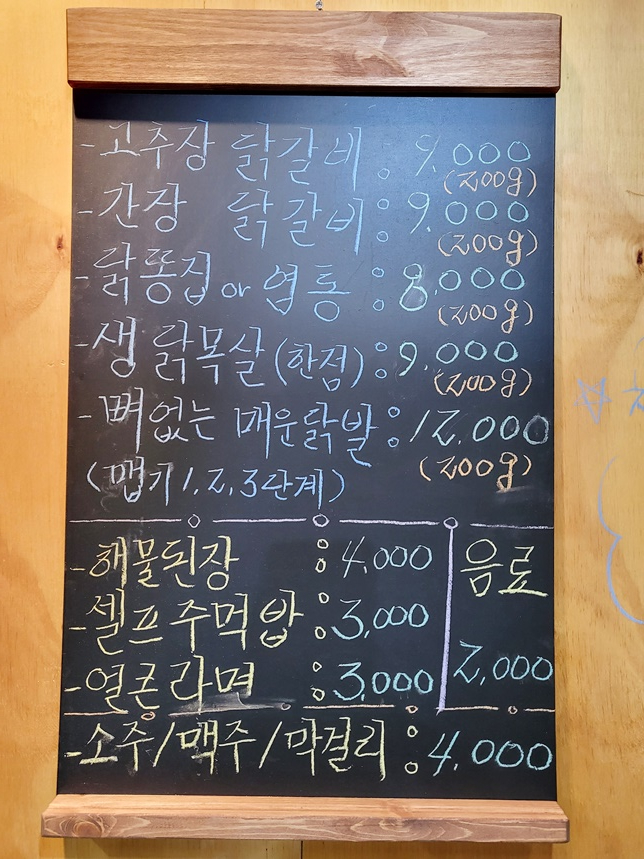 -고추장 닭갈비: 9.000
(200g)
-간장 닭갈비: 9.000
(200g)
-닭똥집 or 염통: 8.000
(200g)
-생 닭목살 (한점): 9.000
(200g)
-뼈없는 매운닭발: 12.000
(200g)
(맵기 1, 2, 3단계)
-해물된장: 4.000
-셀프 주먹 밥: 3.000
-얼큰 라면: 3.000
음료
2,000
-소주/맥주/막걸리: 4.000